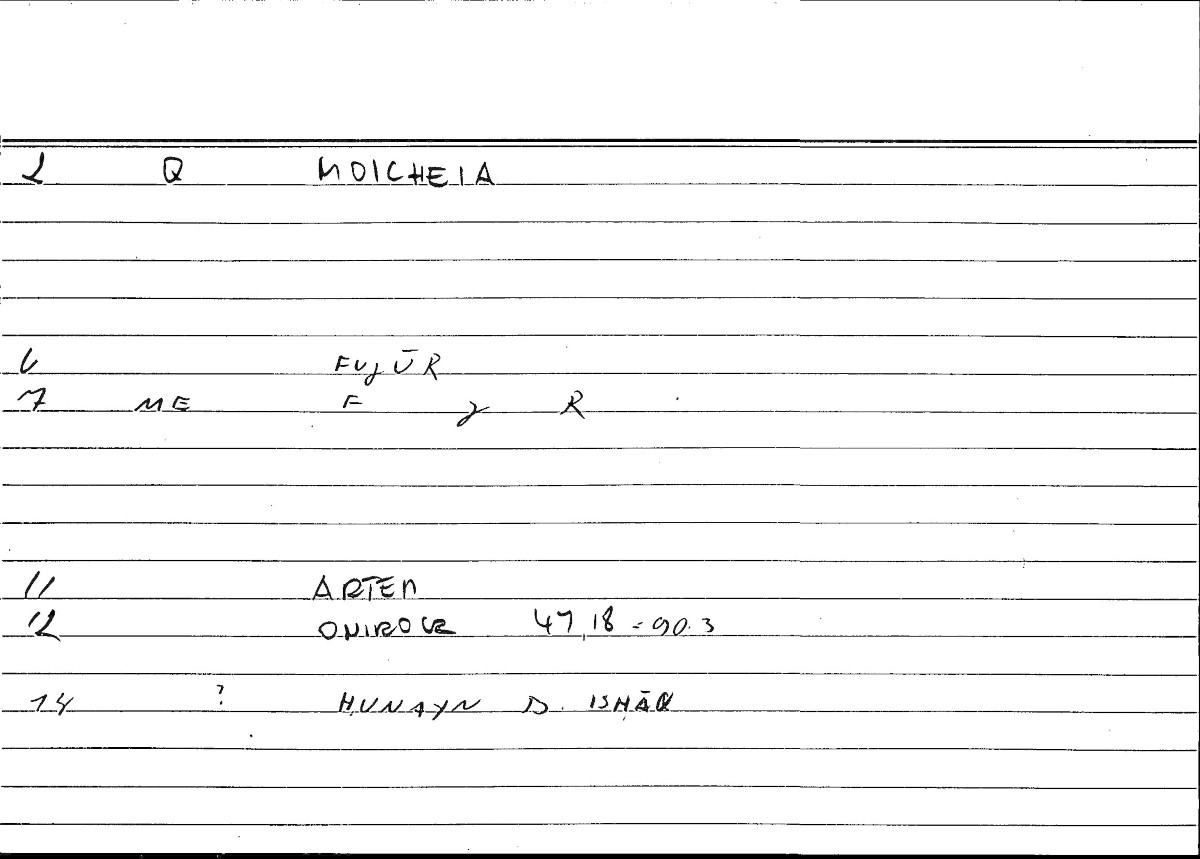 2 Q MOICHEIA
6 FUJŪR
7 ME F J R
11 ARTEM
12 ONIROCR 47,18 = 90.3
14 ? ḤUNAYN B. ISḤĀQ